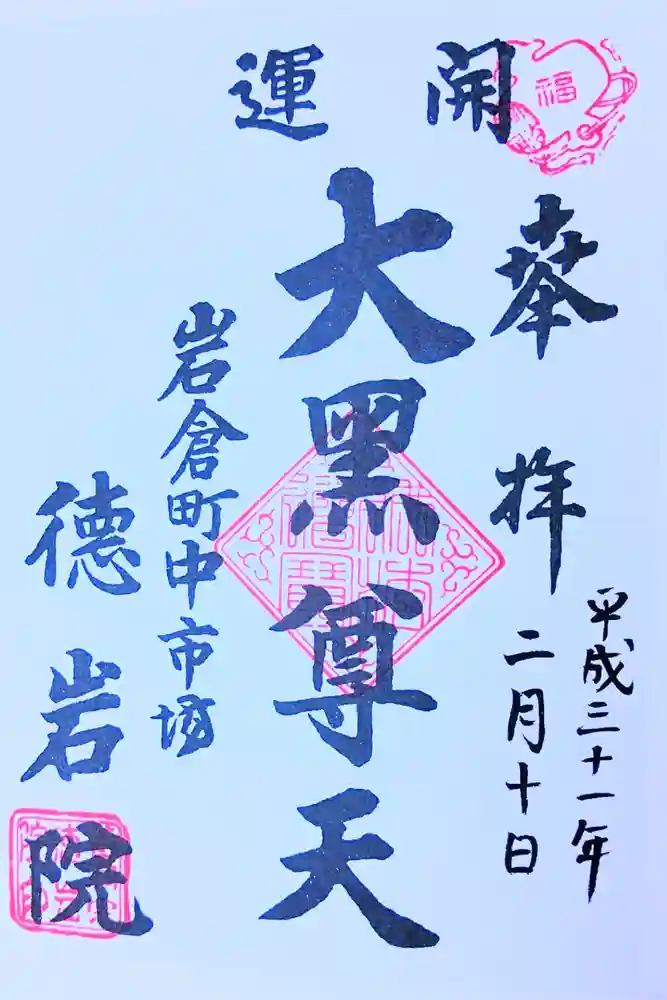 開運
福
奉拝
平成三十一年
二月十日
大黒尊天
岩倉町中市場
徳岩院